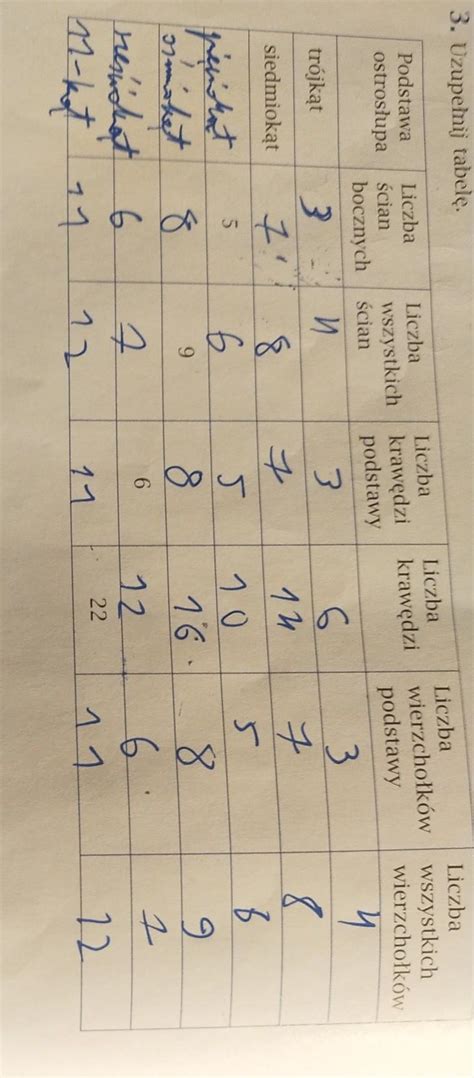 3. Uzupełnij tabelę.
Podstawa ostrosłupa Liczba ścian bocznych Liczba wszystkich ścian Liczba krawędzi podstawy Liczba krawędzi Liczba wierzchołków podstawy Liczba wszystkich wierzchołków
trójkąt 3 4 3 6 3 4
siedmiokąt 7 8 7 14 7 8
pięciokąt 5 6 5 10 5 6
ośmiokąt 8 9 8 16 8 9
sześciokąt 6 7 6 12 6 7
11-kąt 11 12 11 22 11 12